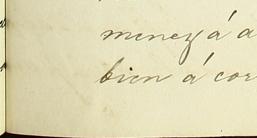 menez á a
bien á cor